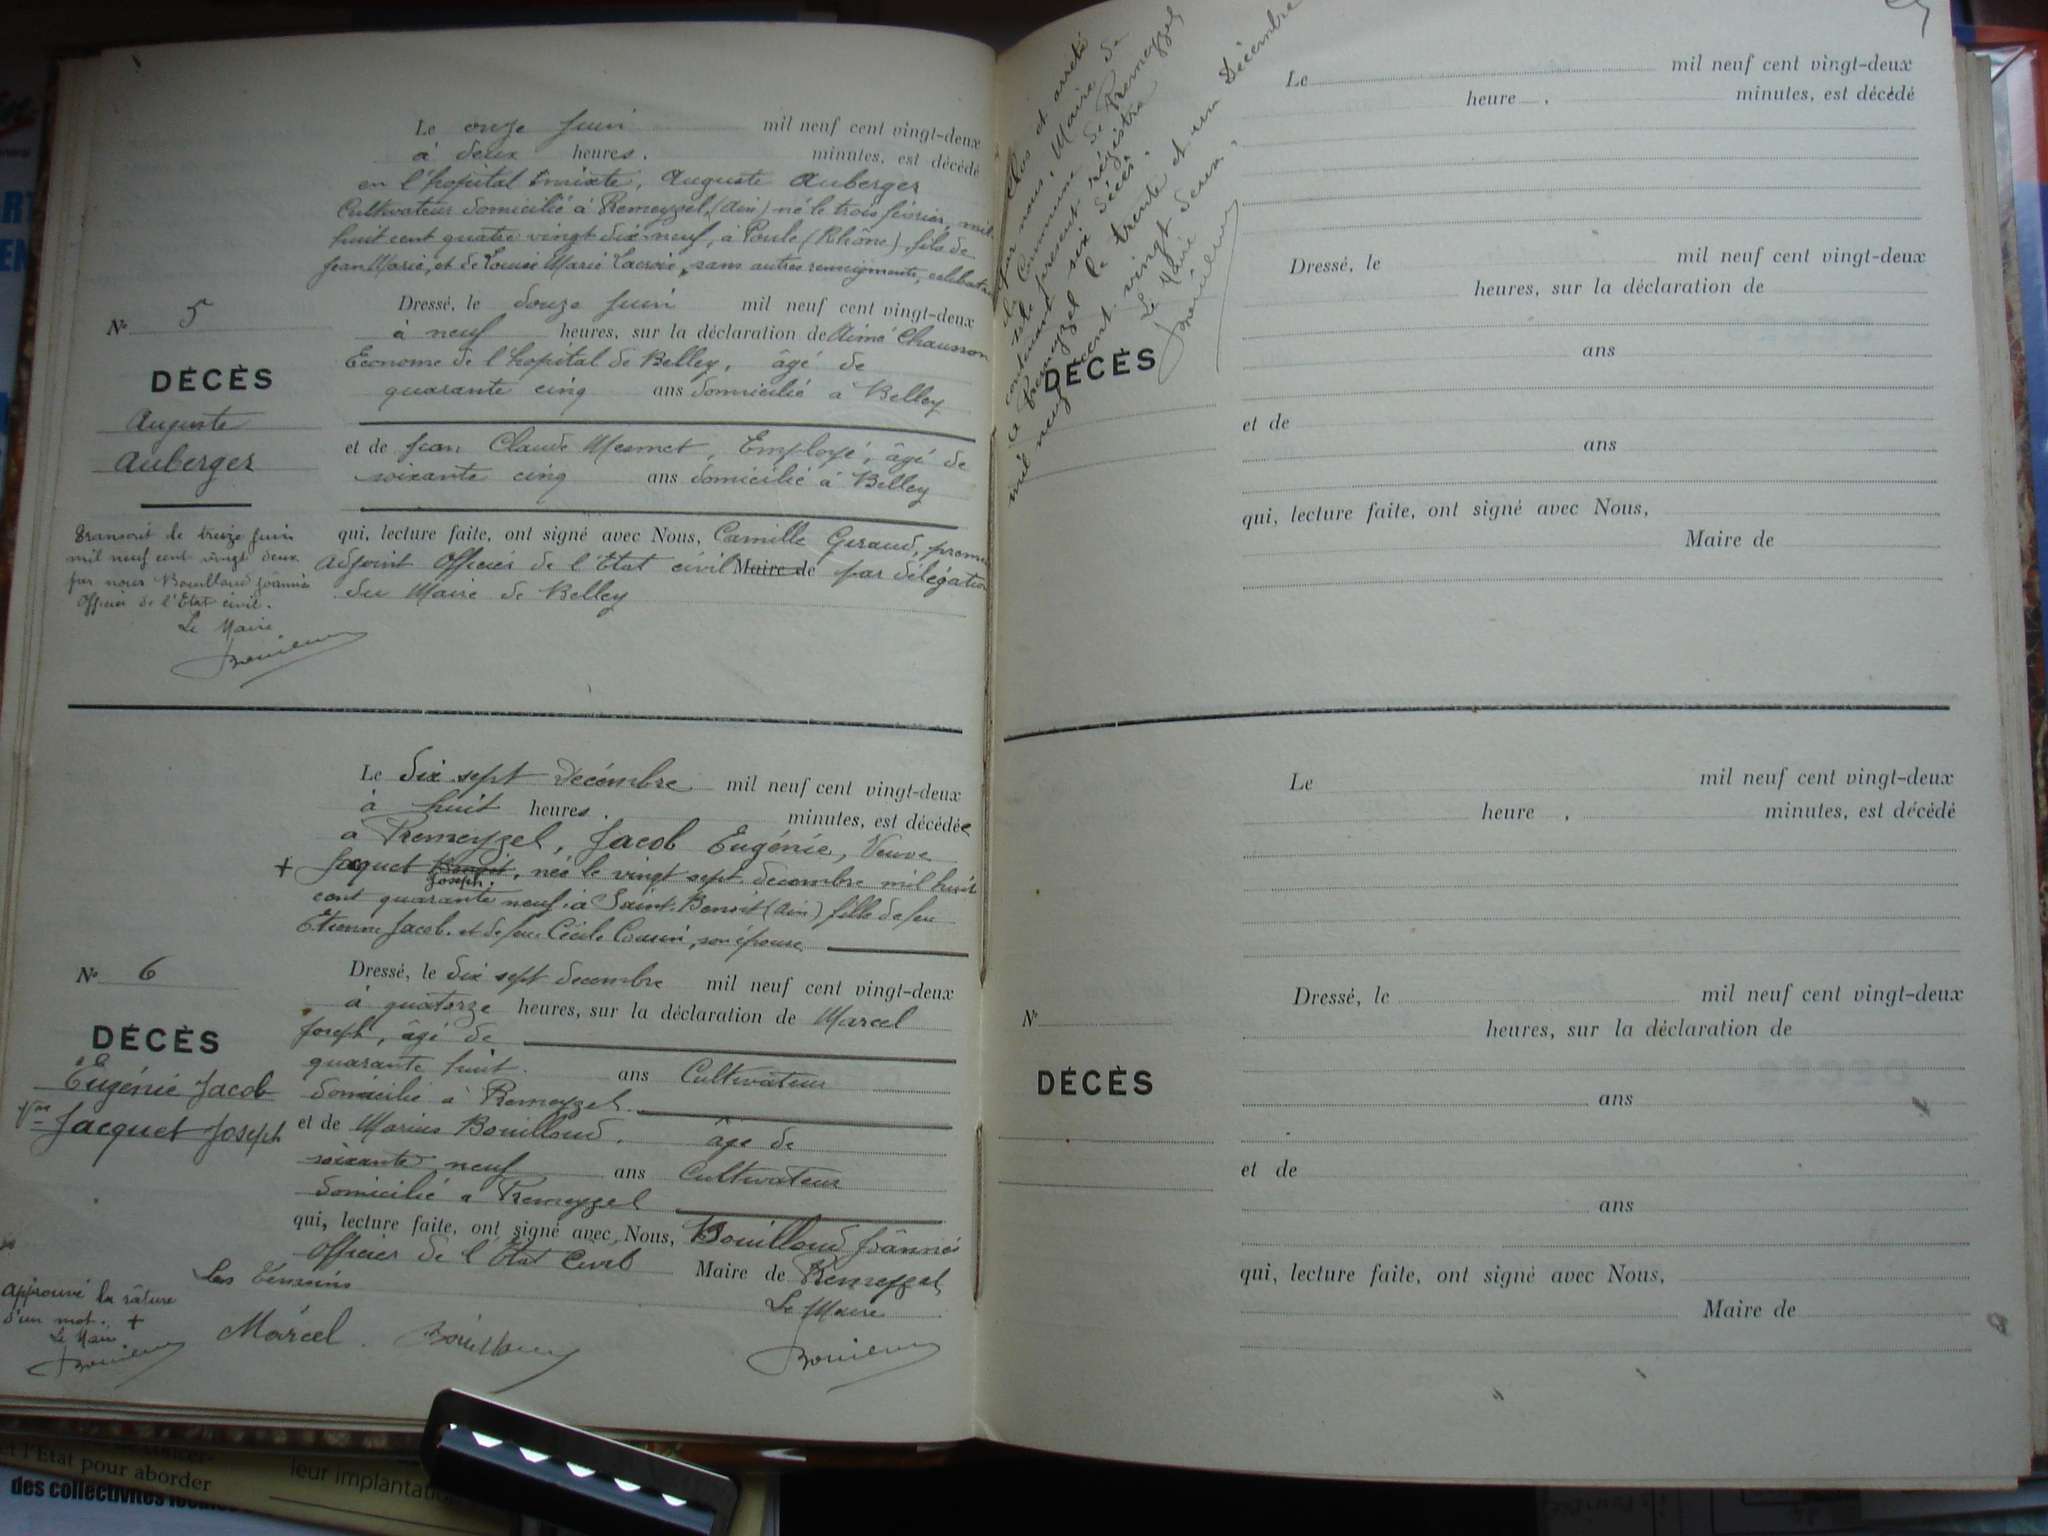 Le onze Juin mil neuf cent vingt-deux
à deux heures. minutes, est décédé
en l'hopital mixte, Auguste Auberger
Cultivateur domicilié à Premeyzel, (Ain) né le trois février, mil
huit cent quatre vingt dix neuf, à Poule (Rhône) fils de
Jean Marie, et de Louise Marie Lacroix, sans autres renseigments, celibataire
Dressé, le douze Juin mil neuf cent vingt-deux
à neuf heures, sur la déclaration de Aimé Chausson
Econome de l'hopital de Belley, âgé de
quarante cinq ans domicilié à Belley
et de Jean Claude Mermet, Employé, âgé de
soixante cinq ans domicilié à Belley
qui, lecture faite, ont signé avec Nous, Camille Geraud, premier
Adjoint Officier de l'Etat civil Maire de par délégation
du Maire de Belley
No 5
DÉCÈS
Auguste
Auberger
Transcrit le treize Juin
mil neuf cent vingt deux
par nous Bouilloud Joannès
Officier de l'Etat civil.
Le Maire
Le dix sept Décembre mil neuf cent vingt-deux
à huit heures. minutes, est décédée
à Premeyzel, Jacob Eugénie, Veuve
+ Jacquet Benoit, née le vingt sept decembre mil huit
Joseph.
cent quarante neuf à Saint-Benoit (Ain) fille de feu
Etienne Jacob et de feue Cécile Cousin, son épouse
Dressé, le dix sept decembre mil neuf cent vingt-deux
à quatorze heures, sur la déclaration de Marcel
Joseph, âgé de
quarante huit. ans Cultivateur
domicilié à Premeyzel
et de Marius Bouilloud, âgé de
soixante neuf ans Cultivateur
domicilié à Premeyzel
qui, lecture faite, ont signé avec Nous, Bouilloud Joannès
Officier de l'Etat Civil Maire de Premeyzel
Les témoins Le Maire
Marcel. Bouilloud
No 6
DÉCÈS
Eugénie Jacob
Vve Jacquet Joseph
Approuvé la râture
d'un mot. +
Le Maire
Clos et arreté
par nous, Maire de
la Commune de Premeyzel
le présent régistre
contenant six décès.
A Premeyzel le trente et un Décembre
mil neuf cent vingt deux,
Le Maire
DÉCÈS
Le mil neuf cent vingt-deux
heure , minutes, est décédé
Dressé, le mil neuf cent vingt-deux
heures, sur la déclaration de
ans
et de
ans
qui, lecture faite, ont signé avec Nous,
Maire de
Le mil neuf cent vingt-deux
heure , minutes, est décédé
No
DÉCÈS
Dressé, le mil neuf cent vingt-deux
heures, sur la déclaration de
ans
et de
ans
qui, lecture faite, ont signé avec Nous,
Maire de
l'Etat pour aborder
leur implantatio
des collectivités locales